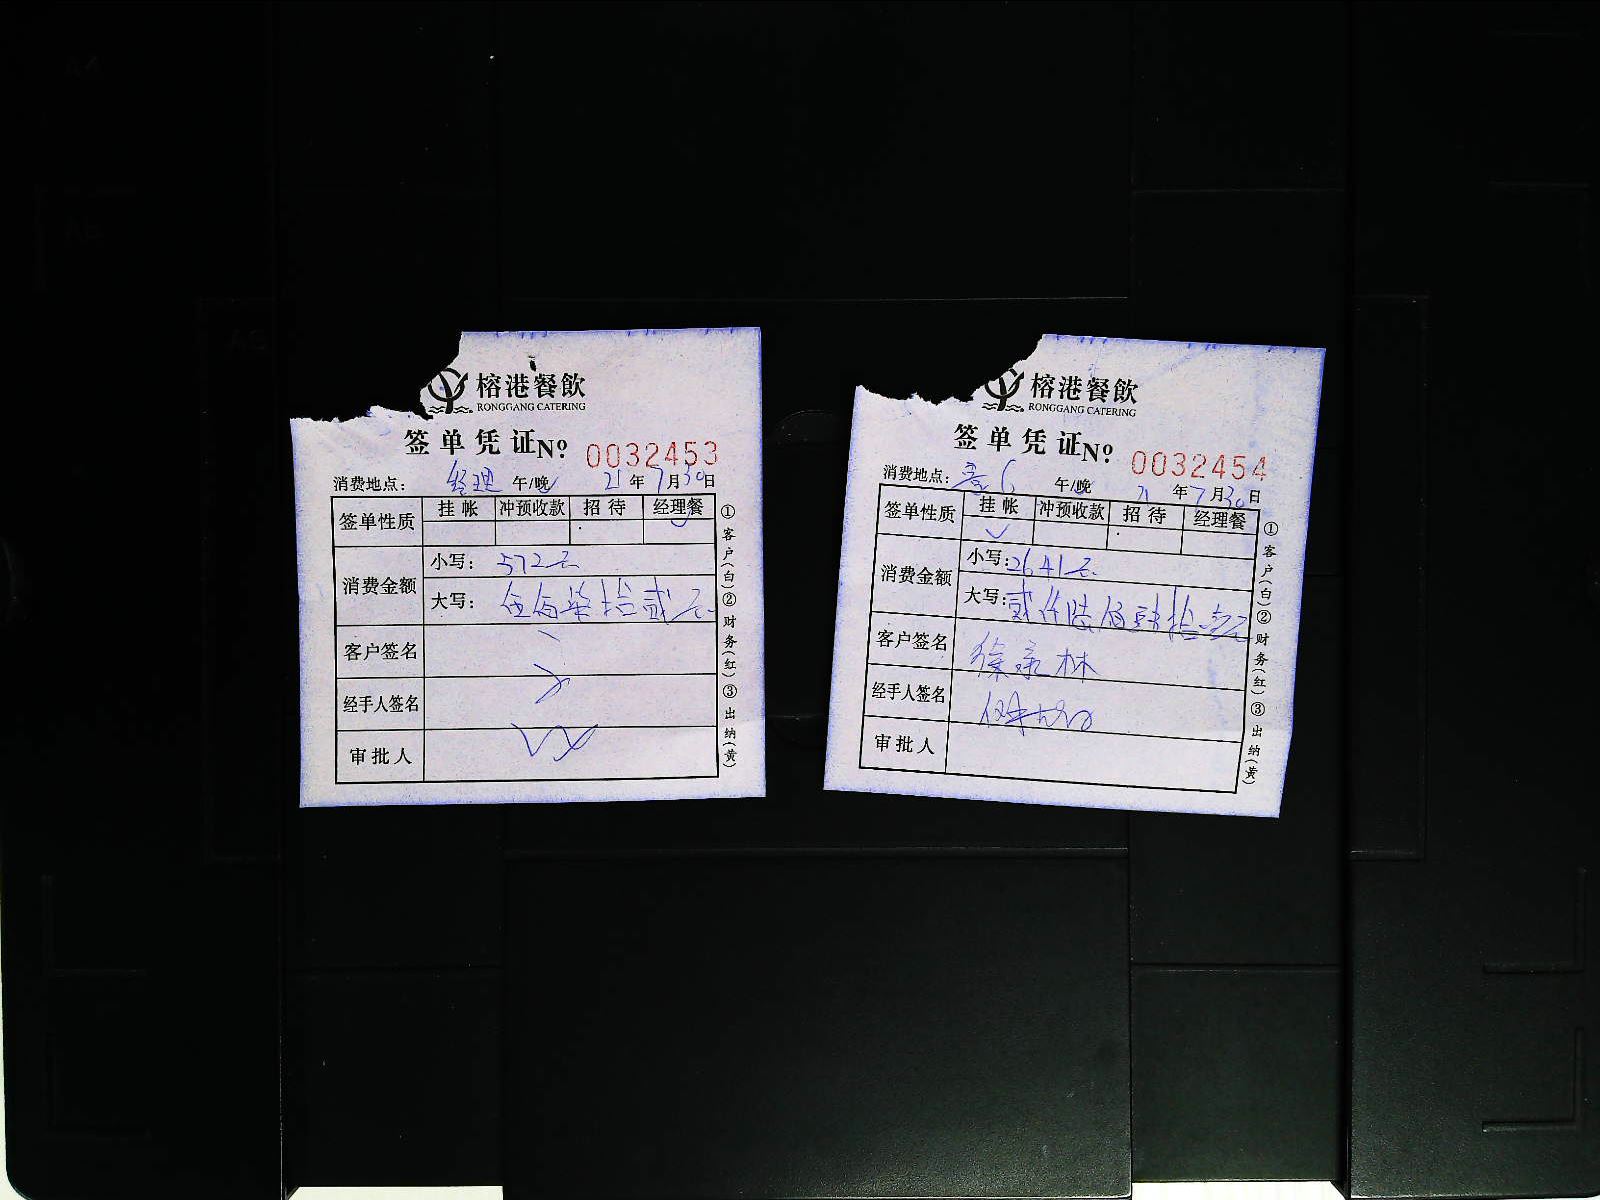 榕港餐飲
RONGGANG CATERING
签单凭证No 0032453
消费地点: 经理 午/晚 21年7月30日
签单性质 挂帐 冲预收款 招待 经理餐
消费金额
小写: 572元
大写: 伍佰柒拾贰元
客户签名
经手人签名
审批人
①客户(白)②财务(红)③出纳(黄)
榕港餐飲
RONGGANG CATERING
签单凭证No 0032454
消费地点: 6 午/晚 21年7月30日
签单性质 挂帐 冲预收款 招待 经理餐
消费金额
小写: 2641元
大写: 贰仟陆佰肆拾壹元
客户签名
经手人签名
审批人
①客户(白)②财务(红)③出纳(黄)